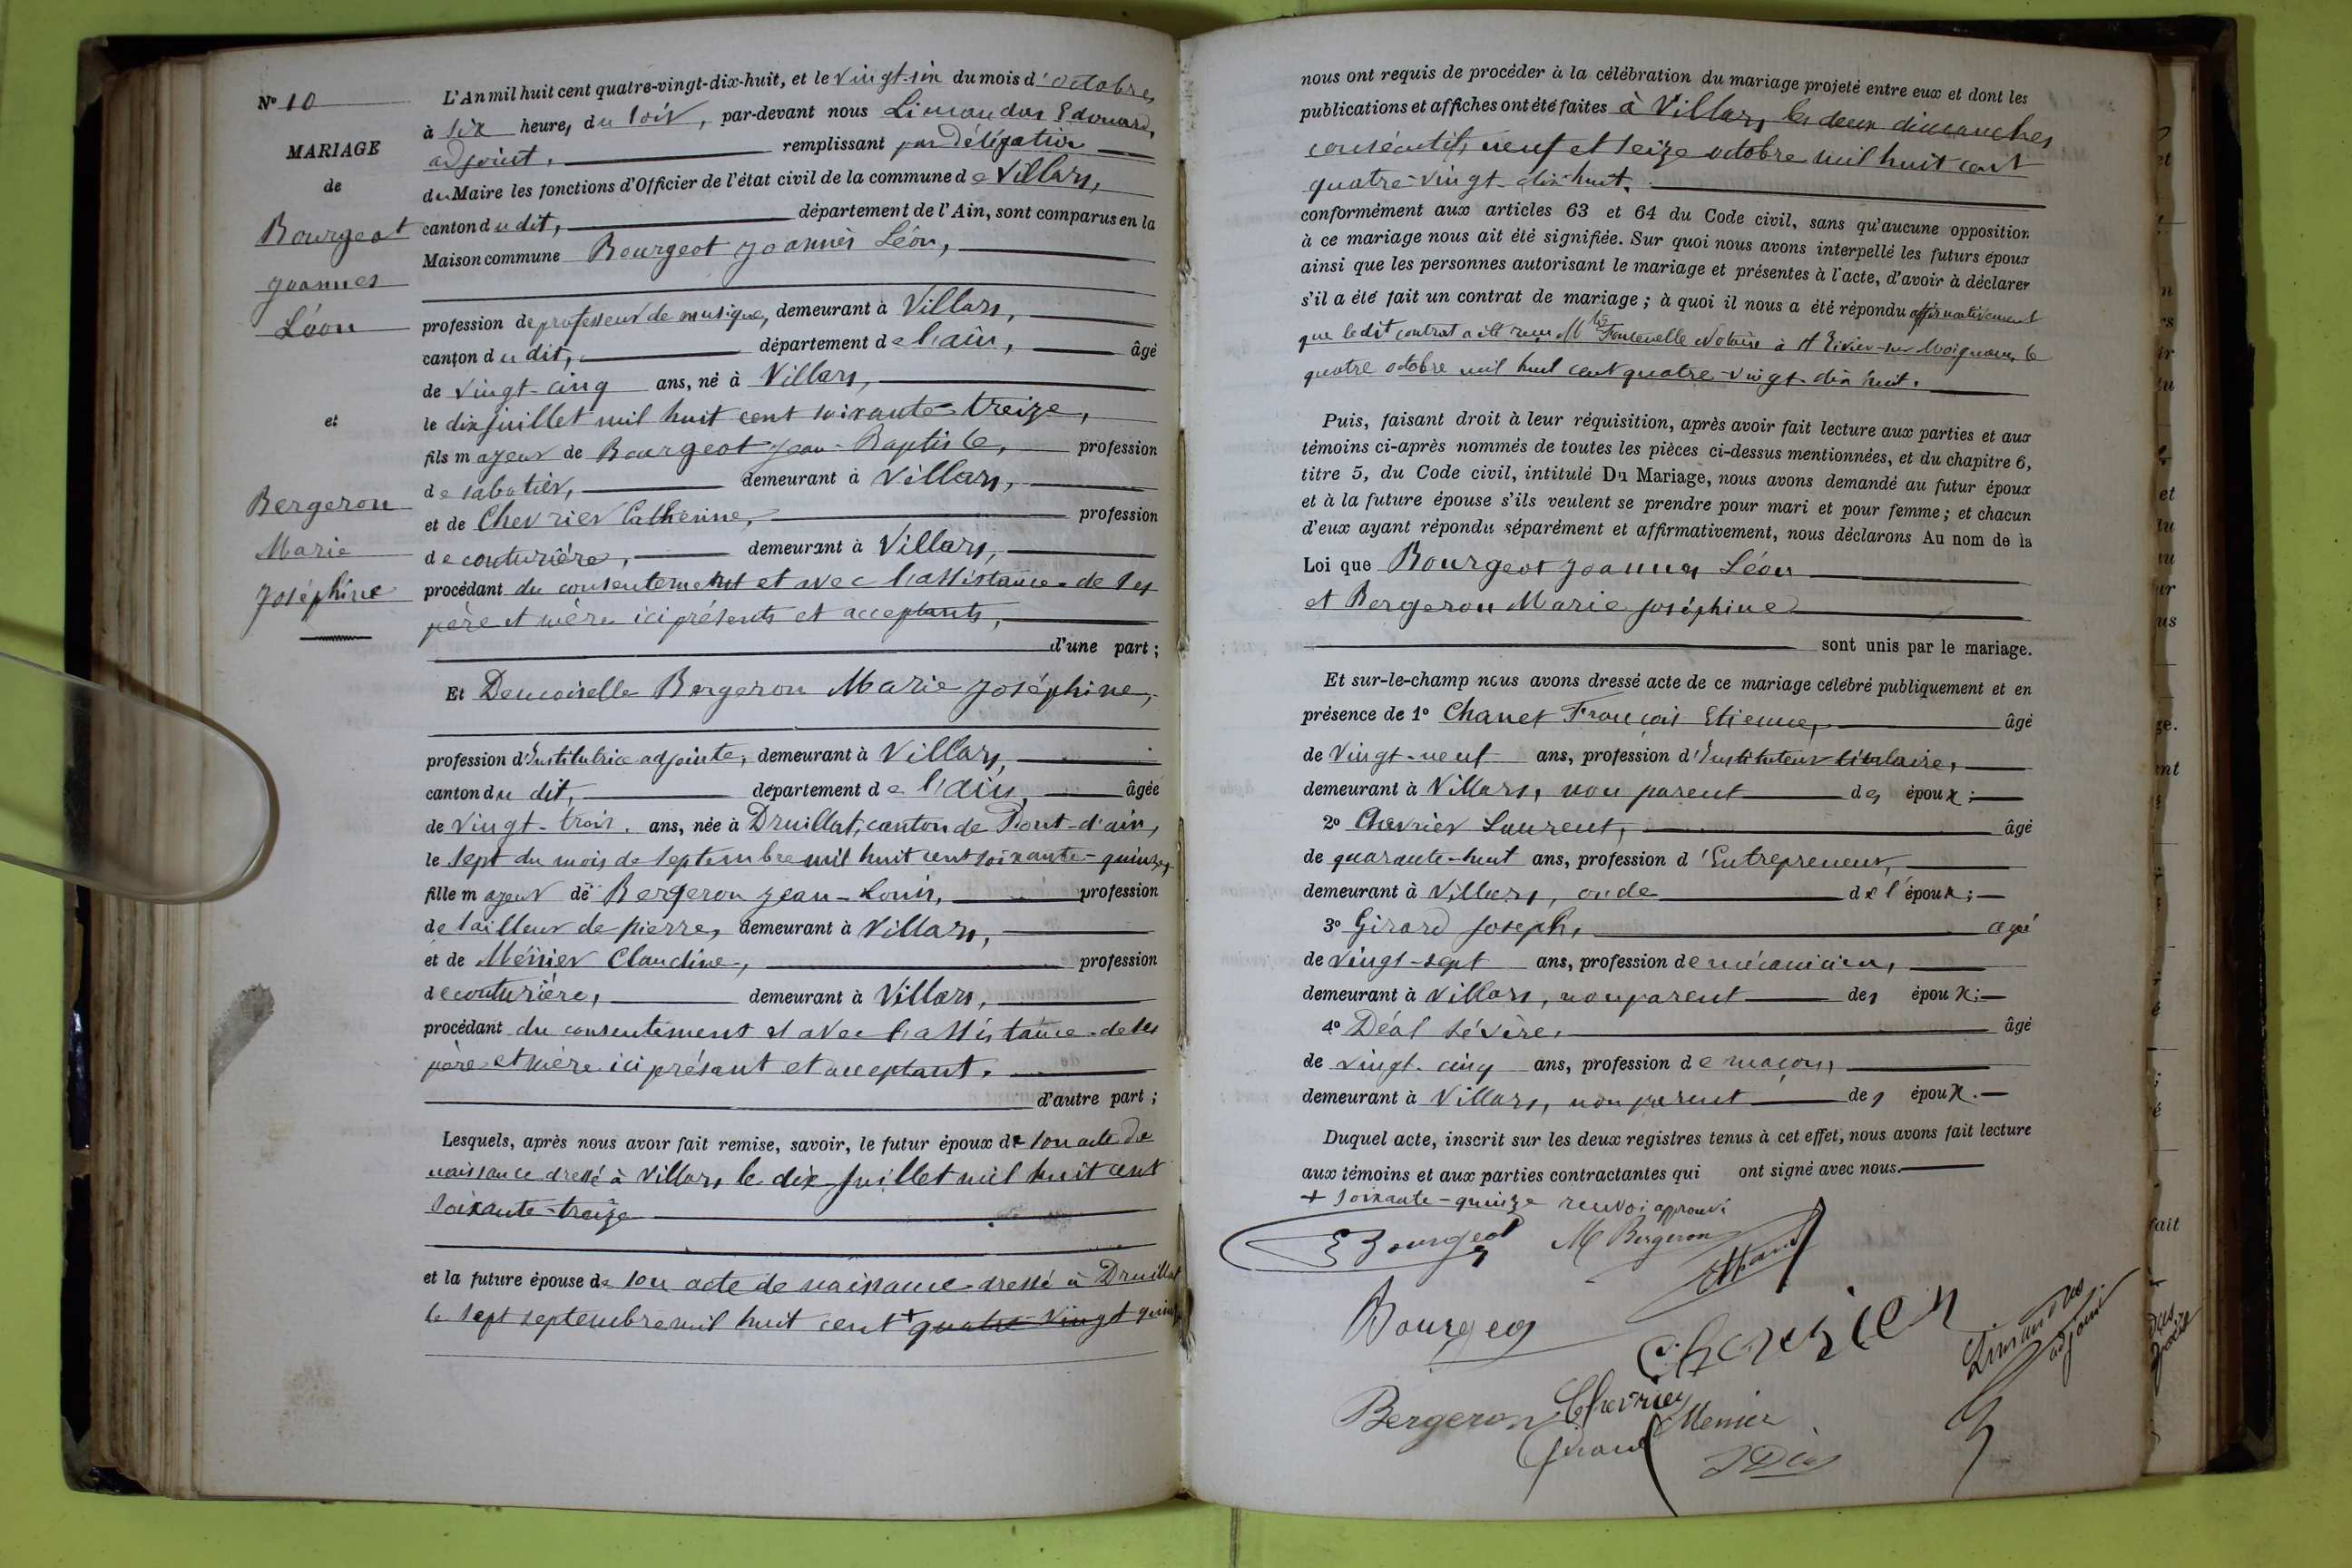 Nº 10
MARIAGE
de
Bourgeot
Joannes
Léon
et
Bergeron
Marie
Joséphine
L'An mil huit cent quatre-vingt-dix-huit, et le vingt-six du mois d'octobre,
à six heures du soir, par-devant nous Limandas Edouard,
adjoint, remplissant par délégation
du Maire les fonctions d'Officier de l'état civil de la commune de Villars,
canton du dit, département de l'Ain, sont comparus en la
Maison commune Bourgeot Joannès Léon,
profession de professeur de musique, demeurant à Villars,
canton du dit, département de l'ain, âgé
de vingt-cinq ans, né à Villars,
le dix juillet mil huit cent soixante-treize,
fils majeur de Bourgeot Jean-Baptiste, profession
de sabotier, demeurant à Villars,
et de Chevrier Catherine, profession
de couturière, demeurant à Villars,
procédant du consentement et avec l'assistance de ses
père et mère ici présents et acceptants,
d'une part ;
Et Demoiselle Bergeron Marie Joséphine,
profession d'Institutrice adjointe, demeurant à Villars,
canton du dit, département de l'ain, âgée
de vingt-trois ans, née à Druillat, canton de Pont-d'ain,
le sept du mois de septembre mil huit cent soixante-quinze,
fille majeur de Bergeron Jean-Louis, profession
de tailleur de pierre, demeurant à Villars,
et de Ménier Claudine, profession
de couturière, demeurant à Villars,
procédant du consentement et avec l'assistance de ses
père et mère ici présent et acceptant.
d'autre part ;
Lesquels, après nous avoir fait remise, savoir, le futur époux de son acte de
naissance dressé à Villars le dix juillet mil huit cent
soixante-treize
et la future épouse de son acte de naissance dressé à Druillat
le sept septembre mil huit cent + quatre-vingt quinze
nous ont requis de procéder à la célébration du mariage projeté entre eux et dont les
publications et affiches ont été faites à Villars, les deux dimanches
consécutifs neuf et seize octobre mil huit cent
quatre-vingt-dix huit.
conformément aux articles 63 et 64 du Code civil, sans qu'aucune opposition
à ce mariage nous ait été signifiée. Sur quoi nous avons interpellé les futurs époux
ainsi que les personnes autorisant le mariage et présentes à l'acte, d'avoir à déclarer
s'il a été fait un contrat de mariage ; à quoi il nous a été répondu affirmativement
que le dit contrat a été reçu Mtre Fontenelle Notaire à St le
quatre octobre mil huit cent quatre-vingt-dix huit.
Puis, faisant droit à leur réquisition, après avoir fait lecture aux parties et aux
témoins ci-après nommés de toutes les pièces ci-dessus mentionnées, et du chapitre 6,
titre 5, du Code civil, intitulé Du Mariage, nous avons demandé au futur époux
et à la future épouse s'ils veulent se prendre pour mari et pour femme ; et chacun
d'eux ayant répondu séparément et affirmativement, nous déclarons Au nom de la
Loi que Bourgeot Joannes Léon
et Bergeron Marie Joséphine
sont unis par le mariage.
Et sur-le-champ nous avons dressé acte de ce mariage célébré publiquement et en
présence de 1º Chanet François Etienne, âgé
de vingt-neuf ans, profession d'Instituteur titulaire,
demeurant à Villars, non parent des époux ;
2º Chevrier Laurent, âgé
de quarante-huit ans, profession d'Entrepreneur,
demeurant à Villars, oncle de l'époux ;
3º Girard Joseph, agé
de vingt-sept ans, profession de mécanicien,
demeurant à Villars, non parent des époux ;
4º Déal Sévère, âgé
de vingt-cinq ans, profession de maçon,
demeurant à Villars, non parent des époux.
Duquel acte, inscrit sur les deux registres tenus à cet effet, nous avons fait lecture
aux témoins et aux parties contractantes qui ont signé avec nous.
+ soixante-quinze renvoi approuvé
Bourgeot M Bergeron
Bourgeot
Chevrier
Limandas
adjoint
Bergeron Chevrier
Menier
Girard